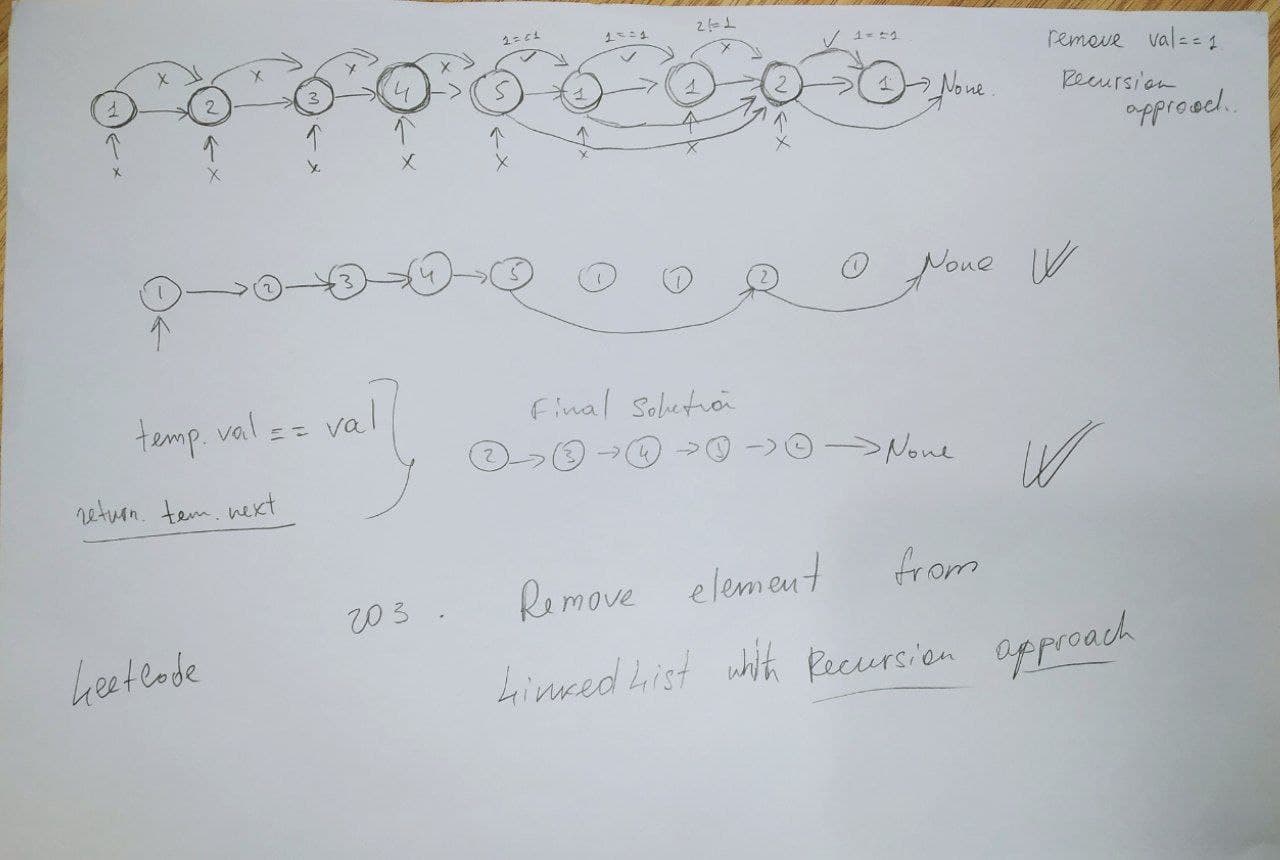 remove val==1
Recursion
approach.
1==1 1==1 2!=1 1==1
x x x x ✓ ✓ x ✓
1 2 3 4 5 1 1 2 1 None.
x x x x x x x x
1 2 3 4 5 1 1 2 1 None
temp.val == val
return. tem.next
Final Solution
2 3 4 5 2 None
203. Remove element from
LeetCode
LinkedList whith Recursion approach